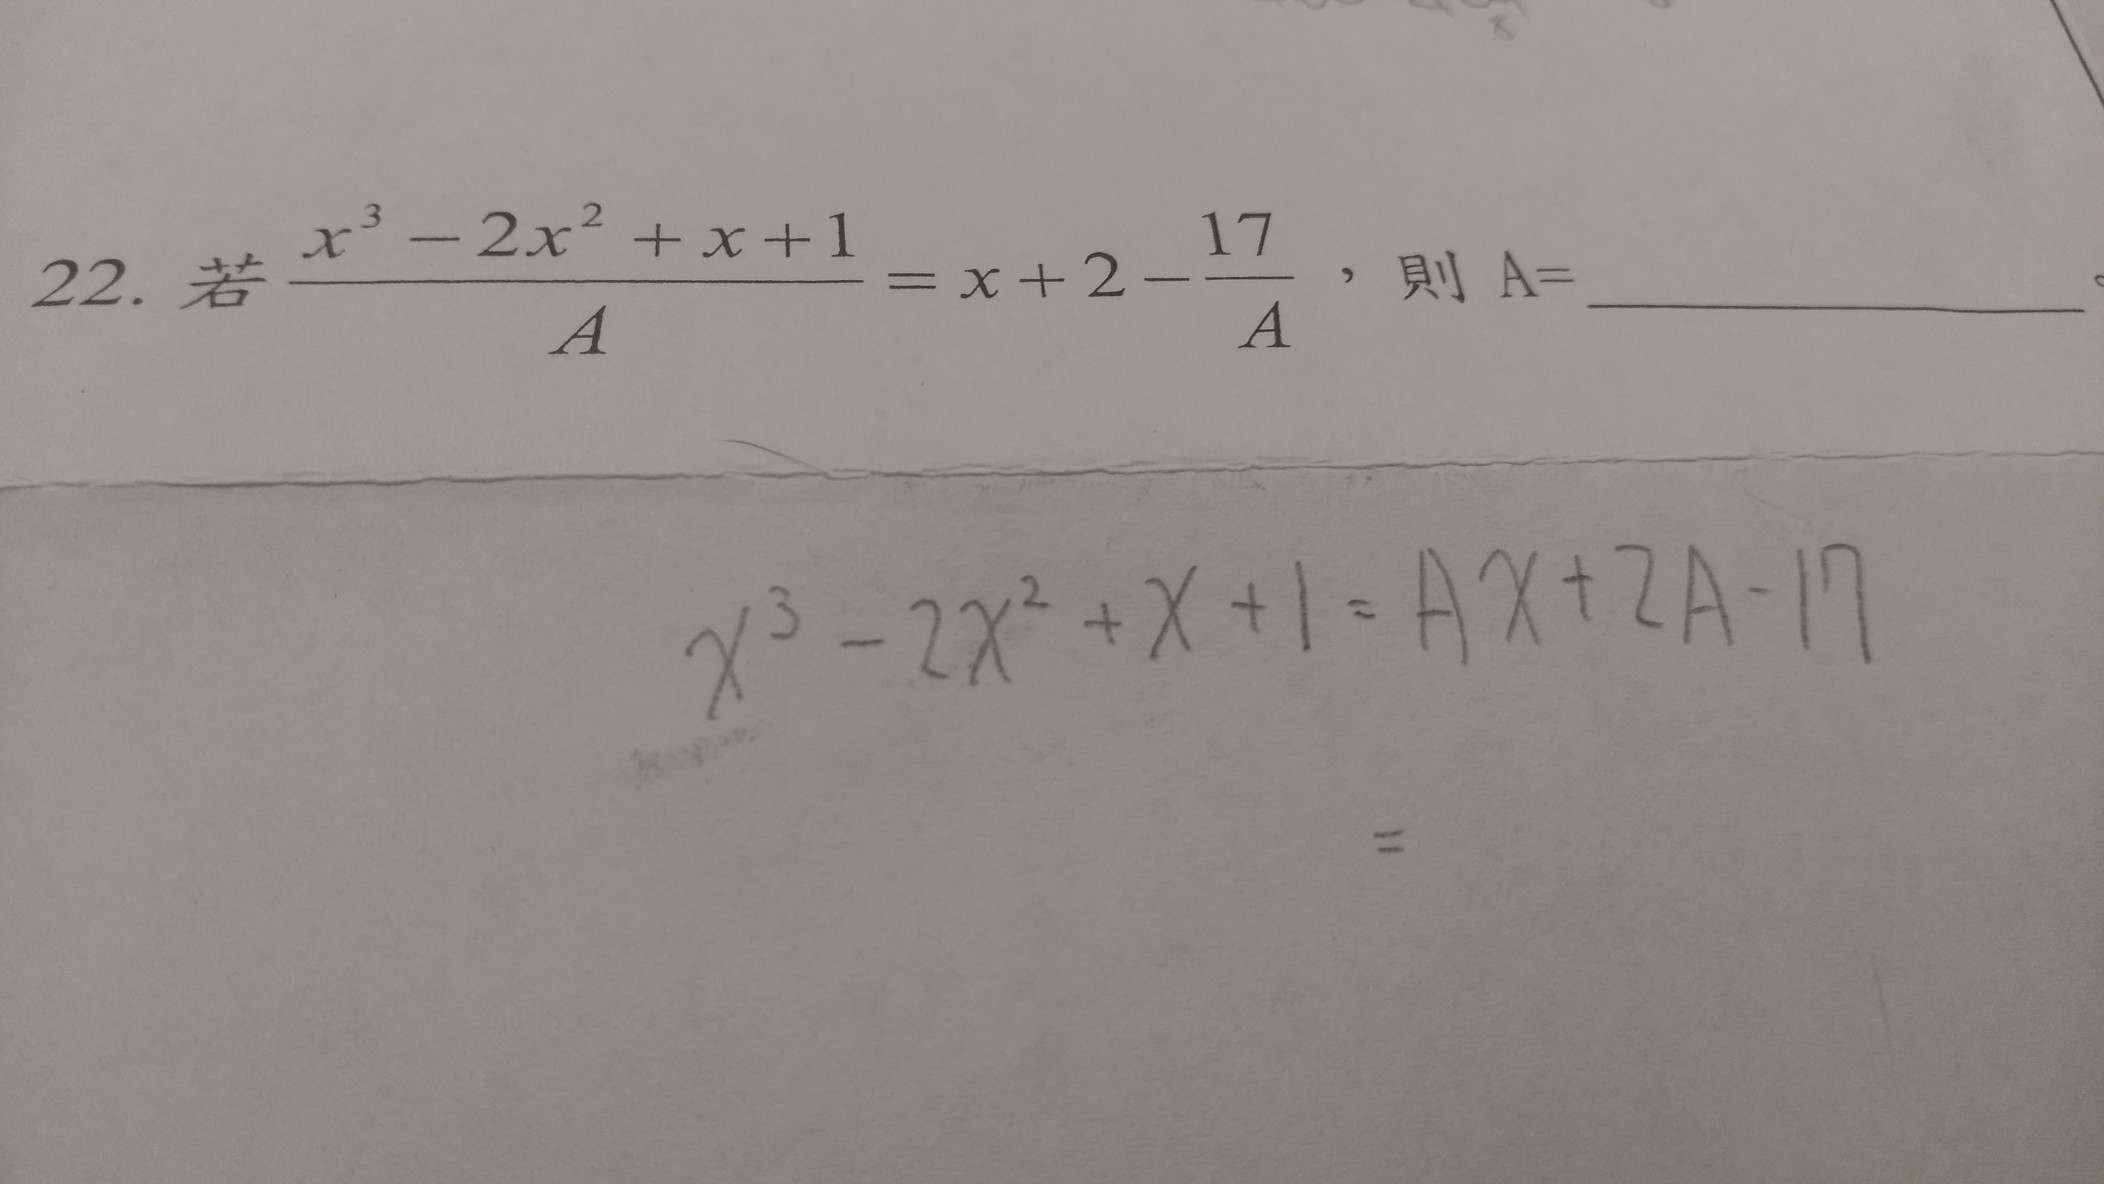 22. 若 \frac{x^3 - 2x^2 + x + 1}{A} = x + 2 - \frac{17}{A}，則 A=__________。
x^3 - 2x^2 + x + 1 = Ax + 2A - 17
=